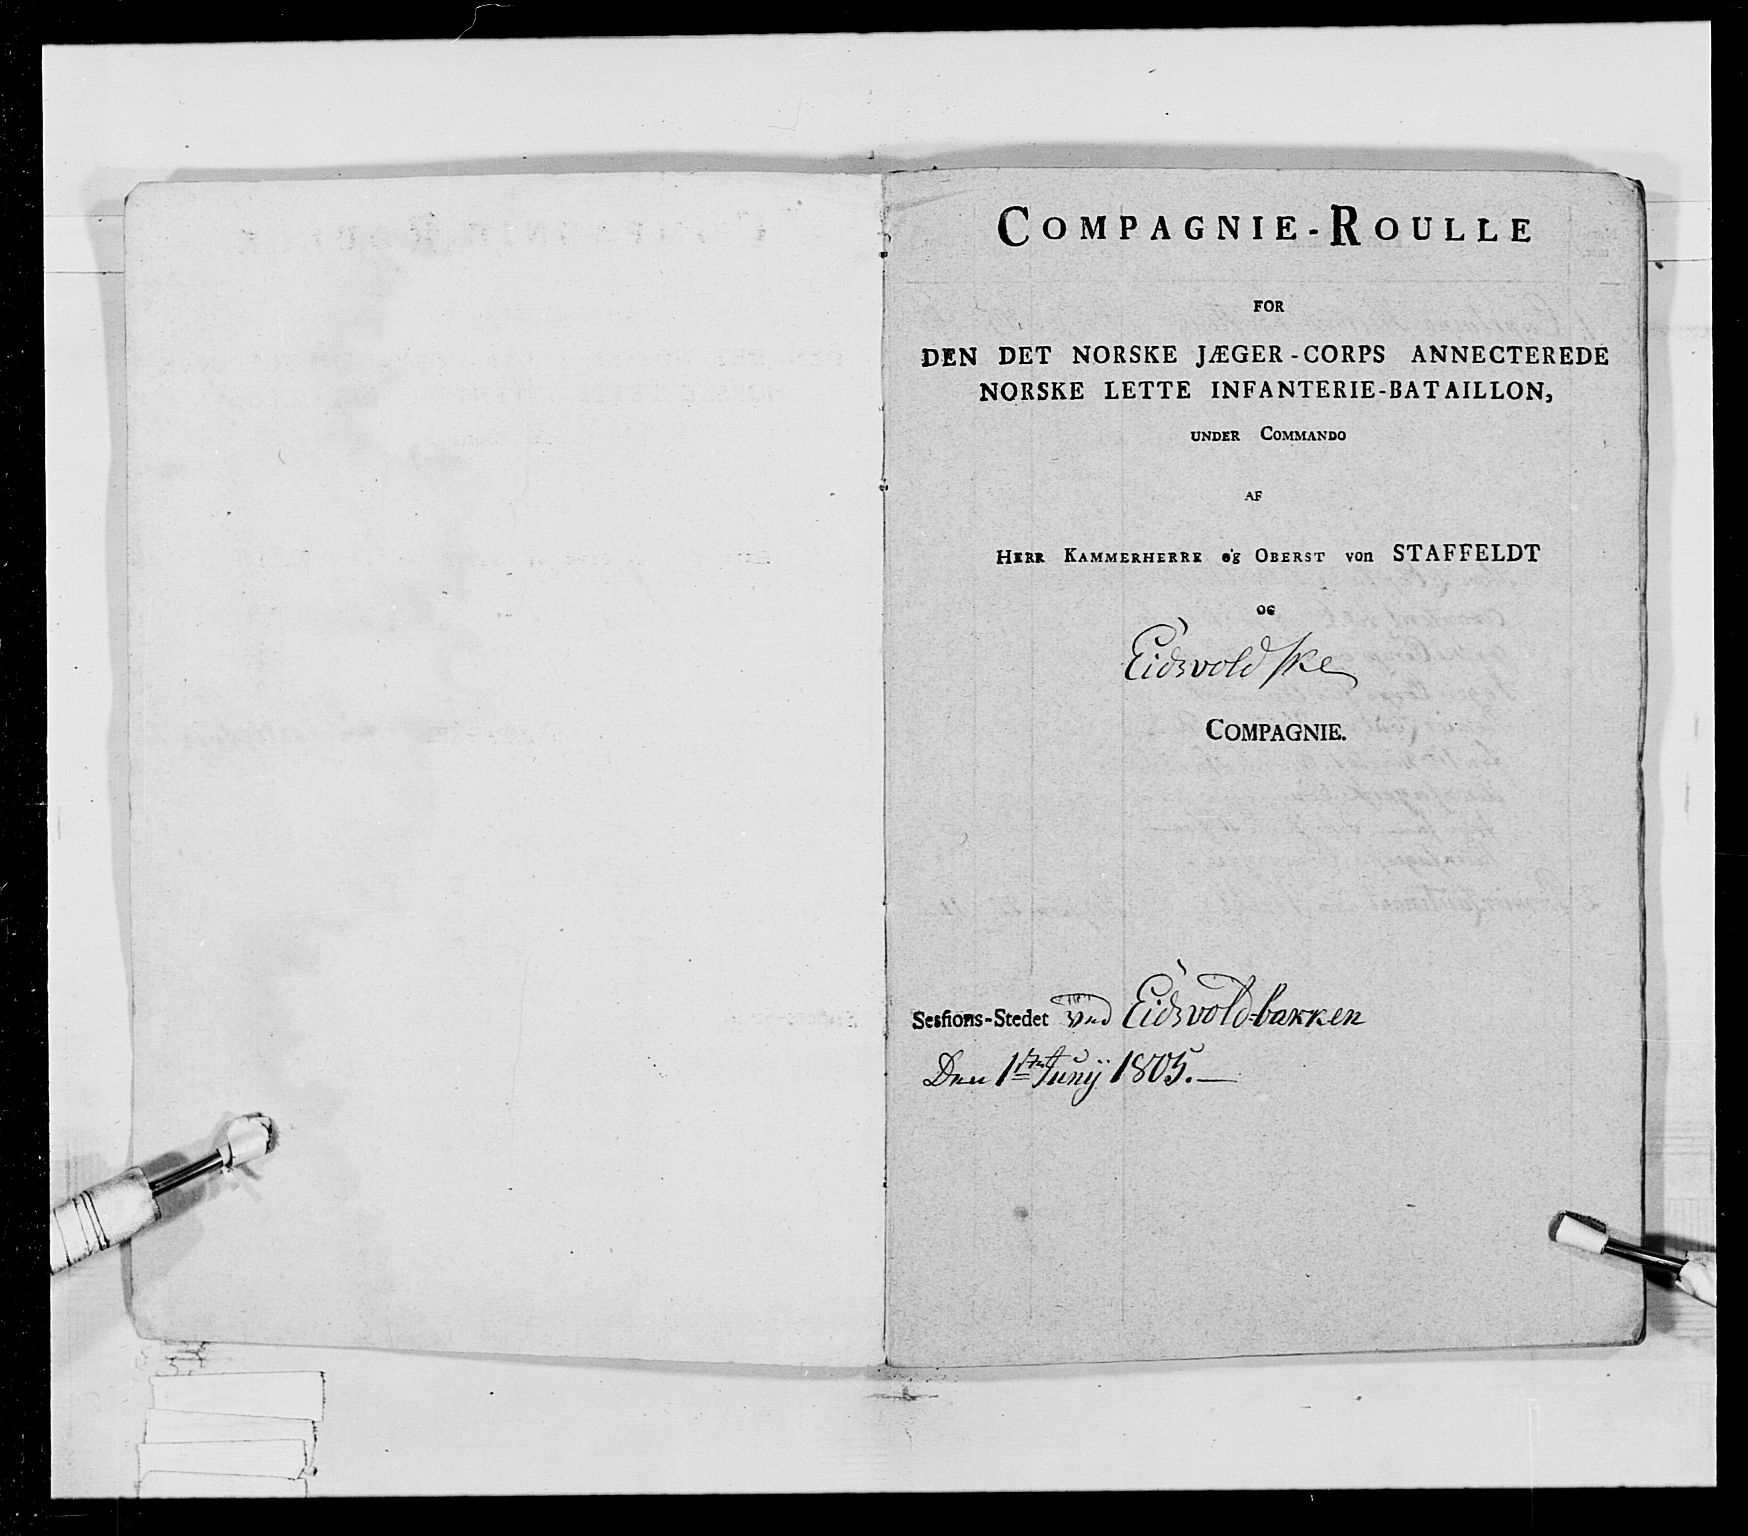 COMPAGNIE-ROULLE
FOR
DEN DET NORSKE JÆGER-CORPS ANNECTEREDE
NORSKE LETTE INFANTERIE-BATAILLON,
UNDER COMMANDO
AF
HERR KAMMERHERRE og OBERST von STAFFELDT
OG
Eidsvoldske
COMPAGNIE.
Sesſions-Stedet ved Eidsvold-bakken
Den 17de Junÿ 1805.—